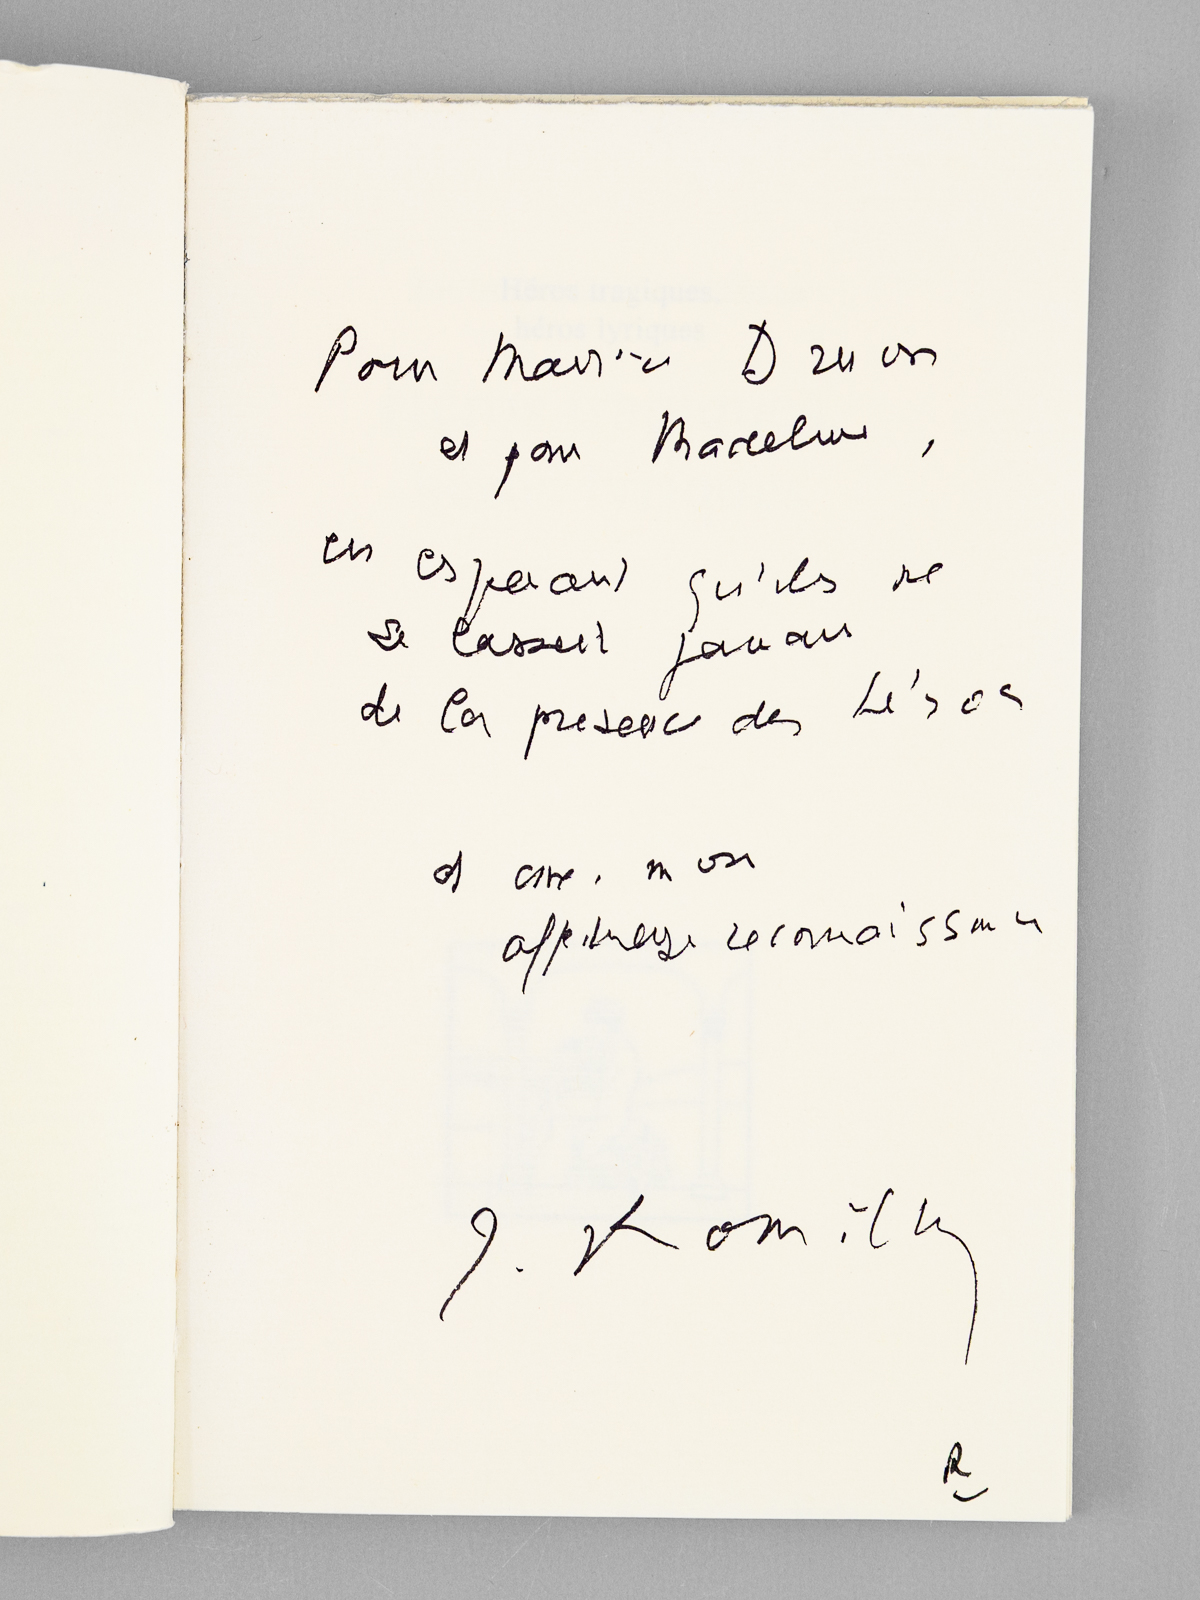 Héros tragiques,
héros lyriques
Pour Maurice Druon
et pour Madeleine,
en esperant qu'ils ne
se lassent jamais
de la presence des héros
et avec mon
affectueuse reconnaissance
J. Romilly
R